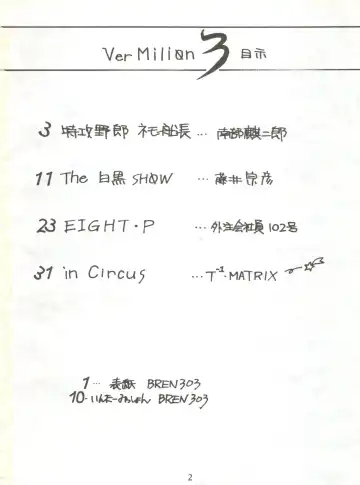 Ver Milion 3 目次
3 特攻野郎 ネモ船長 … 南部麒二郎
11 The 白黒 SHOW … 藤井宗彦
23 EIGHT・P … 外注会社員102号
31 in Circus … T⁻¹・MATRIX
1 … 表紙 BREN303
10・いんたーみっしょん BREN303
2